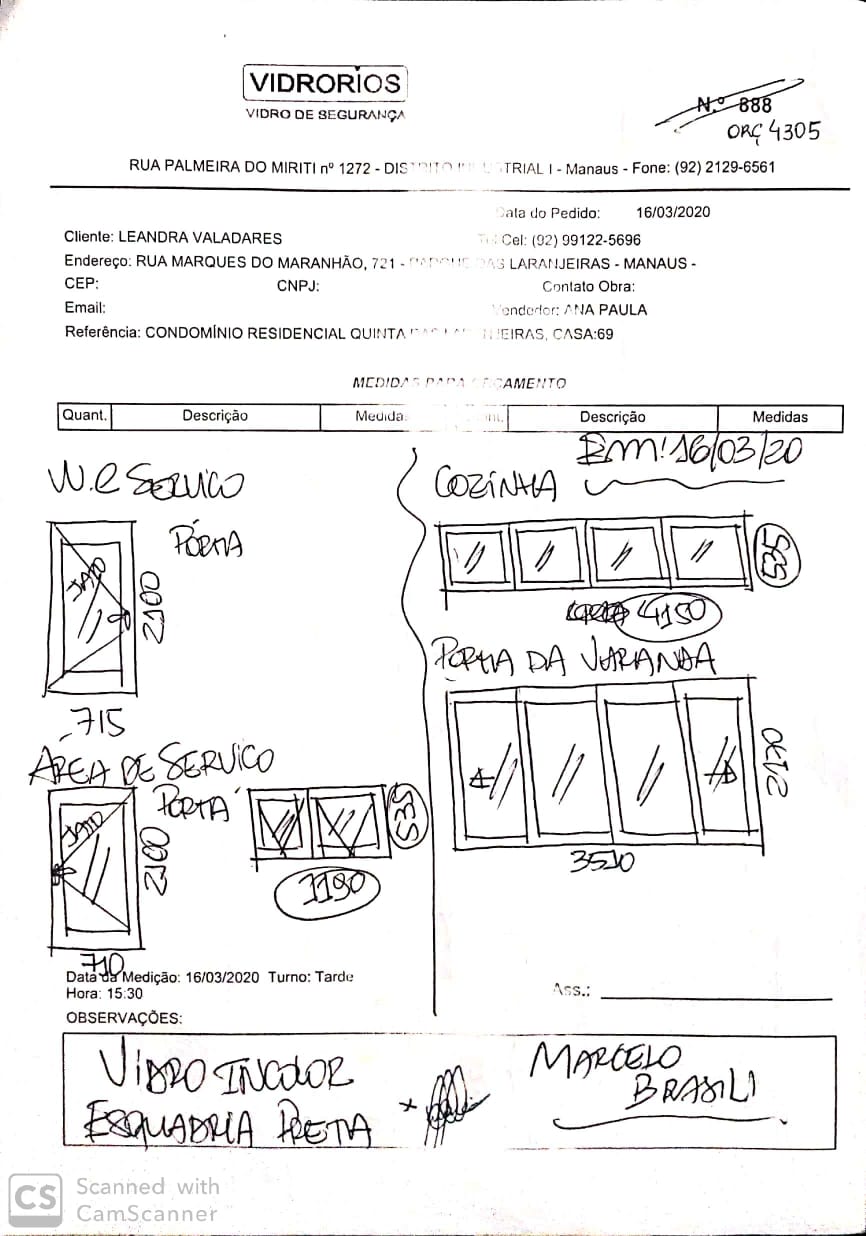 VIDRORIOS
VIDRO DE SEGURANÇA
N.º 888
ORÇ 4305
RUA PALMEIRA DO MIRITI nº 1272 - DISTRITO INDUSTRIAL I - Manaus - Fone: (92) 2129-6561
Data do Pedido: 16/03/2020
Cliente: LEANDRA VALADARES
Cel: (92) 99122-5696
Endereço: RUA MARQUES DO MARANHÃO, 721 - PARQUE DAS LARANJEIRAS - MANAUS -
CEP: CNPJ: Contato Obra:
Email: Vendedor: ANA PAULA
Referência: CONDOMÍNIO RESIDENCIAL QUINTA DAS LARANJEIRAS, CASA:69
MEDIDAS PARA ORÇAMENTO
Quant. Descrição Medidas Quant. Descrição Medidas
EM! 16/03/20
W.C SERVICO
PORTA
JATO
2100
715
AREA DE SERVICO
PORTA
JATO
2100
710
535
1190
COZINHA
535
4150
PORTA DA VARANDA
2170
3510
Data da Medição: 16/03/2020 Turno: Tarde
Hora: 15:30
Ass.:
OBSERVAÇÕES:
VIDRO INCOLOR
ESQUADRIA PRETA
MARCELO
BRASILI
CS Scanned with
CamScanner